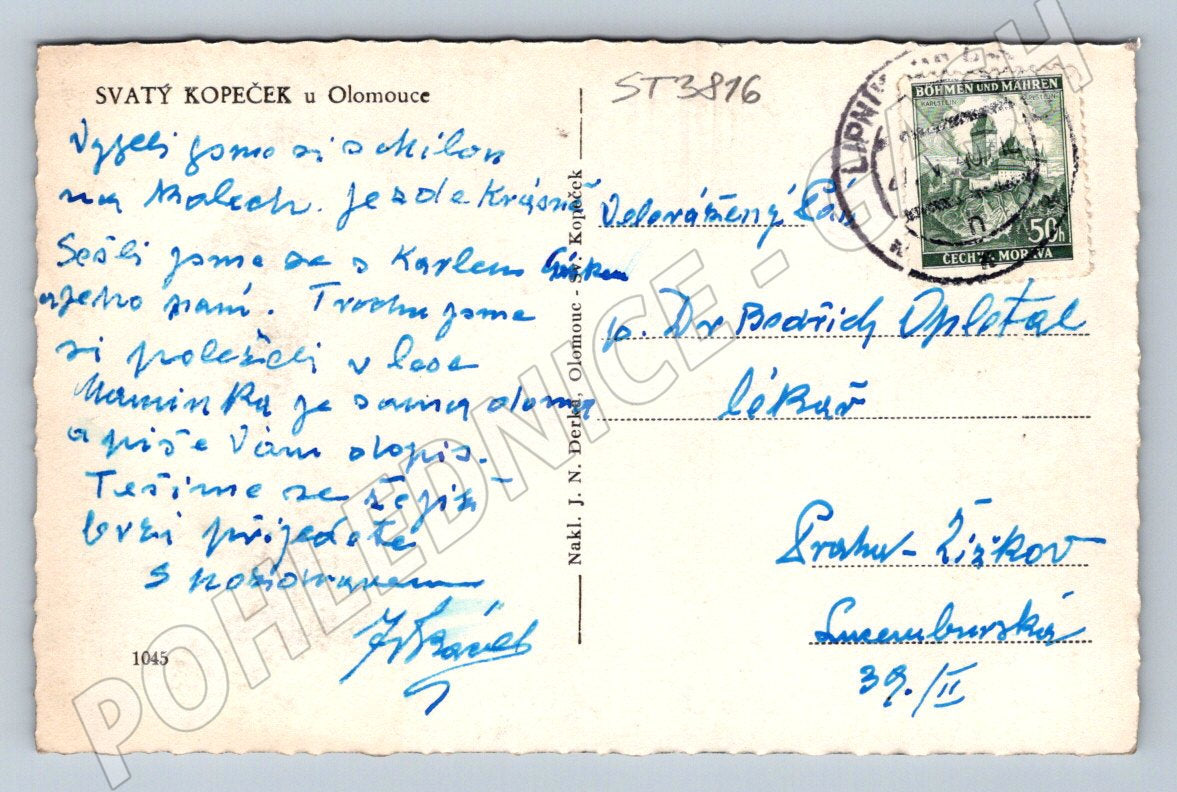 SVATÝ KOPEČEK u Olomouce
Vyjeli jsme si s Milou
na kolech. Je zde krásně
Sešli jsme se s Karlem
a jeho paní. Trochu jsme
si poleželi v lese
Maminka je sama doma
a píše Vám dopis.
Těšíme se že již
brzy přijedete
S
1045
Nakl. J. N. Derka, Olomouc - Sv. Kopeček
ST3816
LIPNÍK
BÖHMEN UND MÄHREN
KARLSTEIN
50h
ČECHY A MORAVA
Velevážený Pán
p. Dr Bedřich Opletal
lékař
Praha - Žižkov
Lucemburská
39./II
POHLEDNICE - CZECH